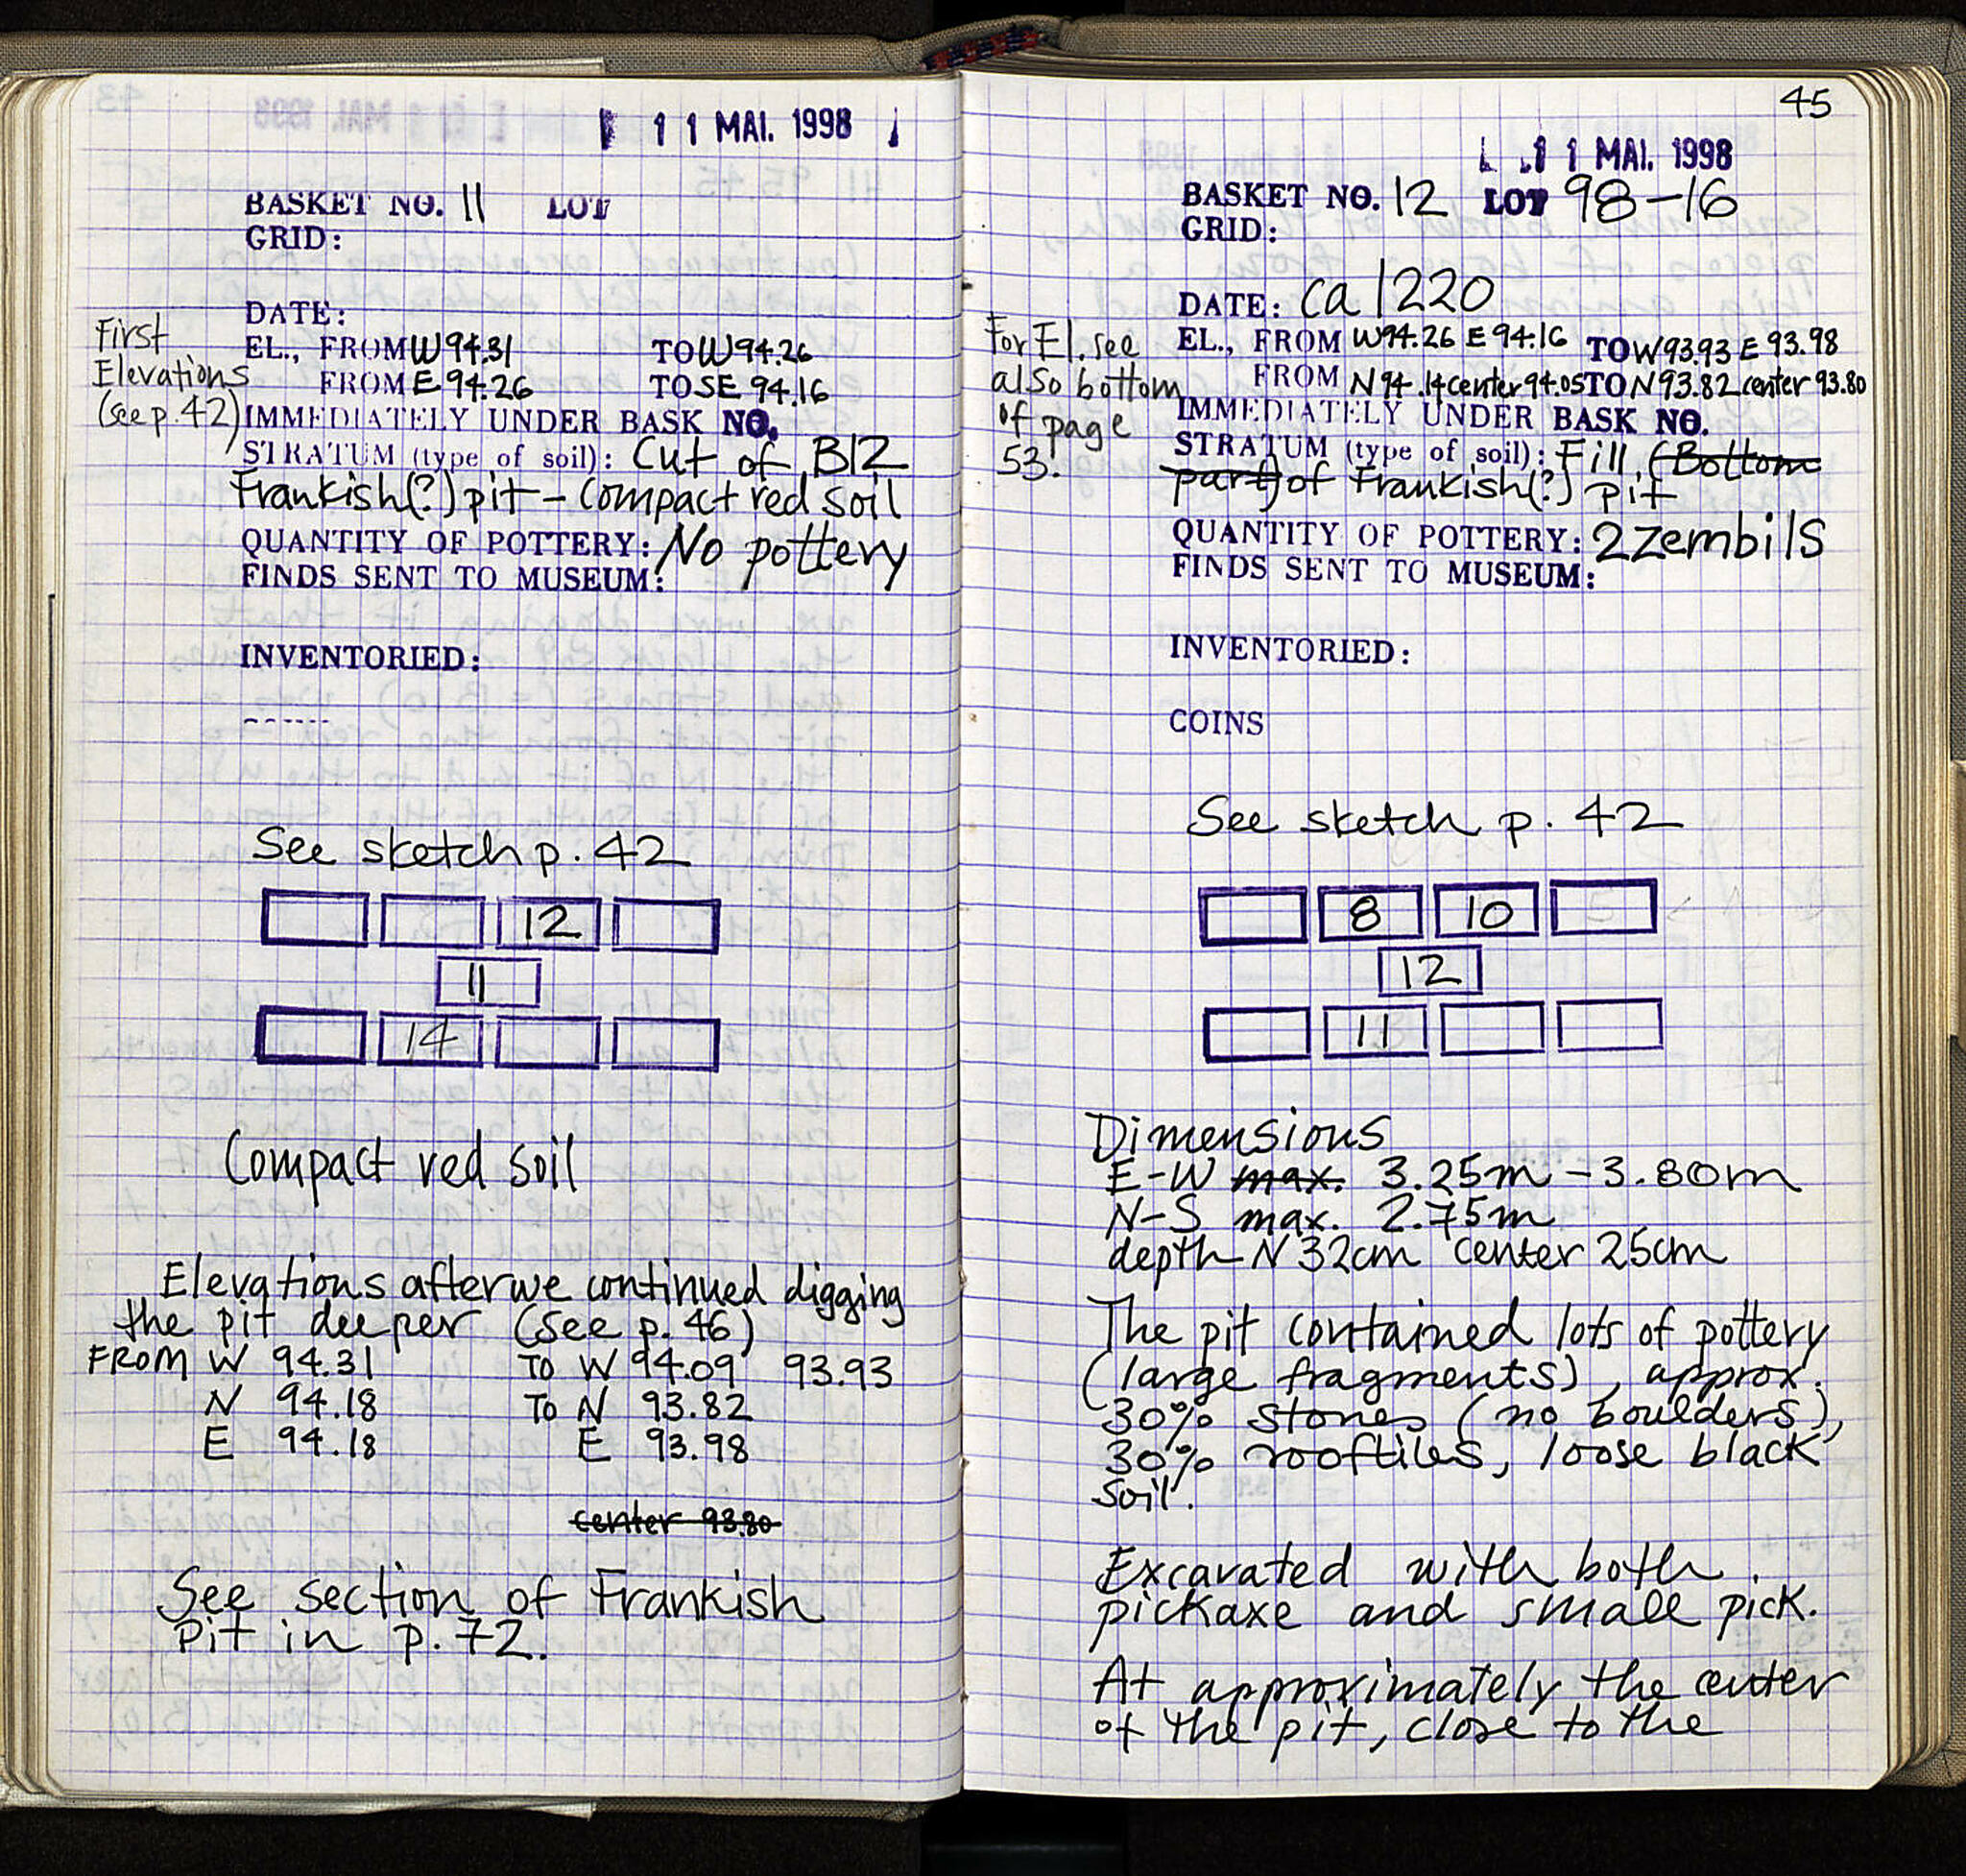 11 MAI. 1998
BASKET NO. 11 LOT
GRID:
DATE:
First
Elevations
(see p. 42)
EL., FROM W 94.31 TO W 94.26
FROM E 94.26 TO SE 94.16
IMMEDIATELY UNDER BASK NO.
STRATUM (type of soil): Cut of B12
Frankish(?) pit - Compact red soil
QUANTITY OF POTTERY: No pottery
FINDS SENT TO MUSEUM:
INVENTORIED:
------
See sketch p. 42
12
11
14
Compact red soil
Elevations after we continued digging
the pit deeper (see p. 46)
FROM W 94.31 TO W 94.09 93.93
N 94.18 TO N 93.82
E 94.18 E 93.98
center 93.80
See section of Frankish
Pit in p. 72.
45
11 MAI. 1998
BASKET NO. 12 LOT 98-16
GRID:
DATE: ca 1220
For El. see
also bottom
of page
53.
EL., FROM W94.26 E 94.16 TO W 93.93 E 93.98
FROM N 94.14 center 94.05 TO N 93.82 center 93.80
IMMEDIATELY UNDER BASK NO.
STRATUM (type of soil): Fill (Bottom
part) of Frankish(?) pit
QUANTITY OF POTTERY: 2 zembils
FINDS SENT TO MUSEUM:
INVENTORIED:
COINS
See sketch p. 42
8 10
12
11
Dimensions
E-W max. 3.25m - 3.80m
N-S max. 2.75m
depth N 32cm center 25cm
The pit contained lots of pottery
(large fragments), approx.
30% stones (no boulders),
30% rooftiles, loose black
soil.
Excavated with both
pickaxe and small pick.
At approximately the center
of the pit, close to the